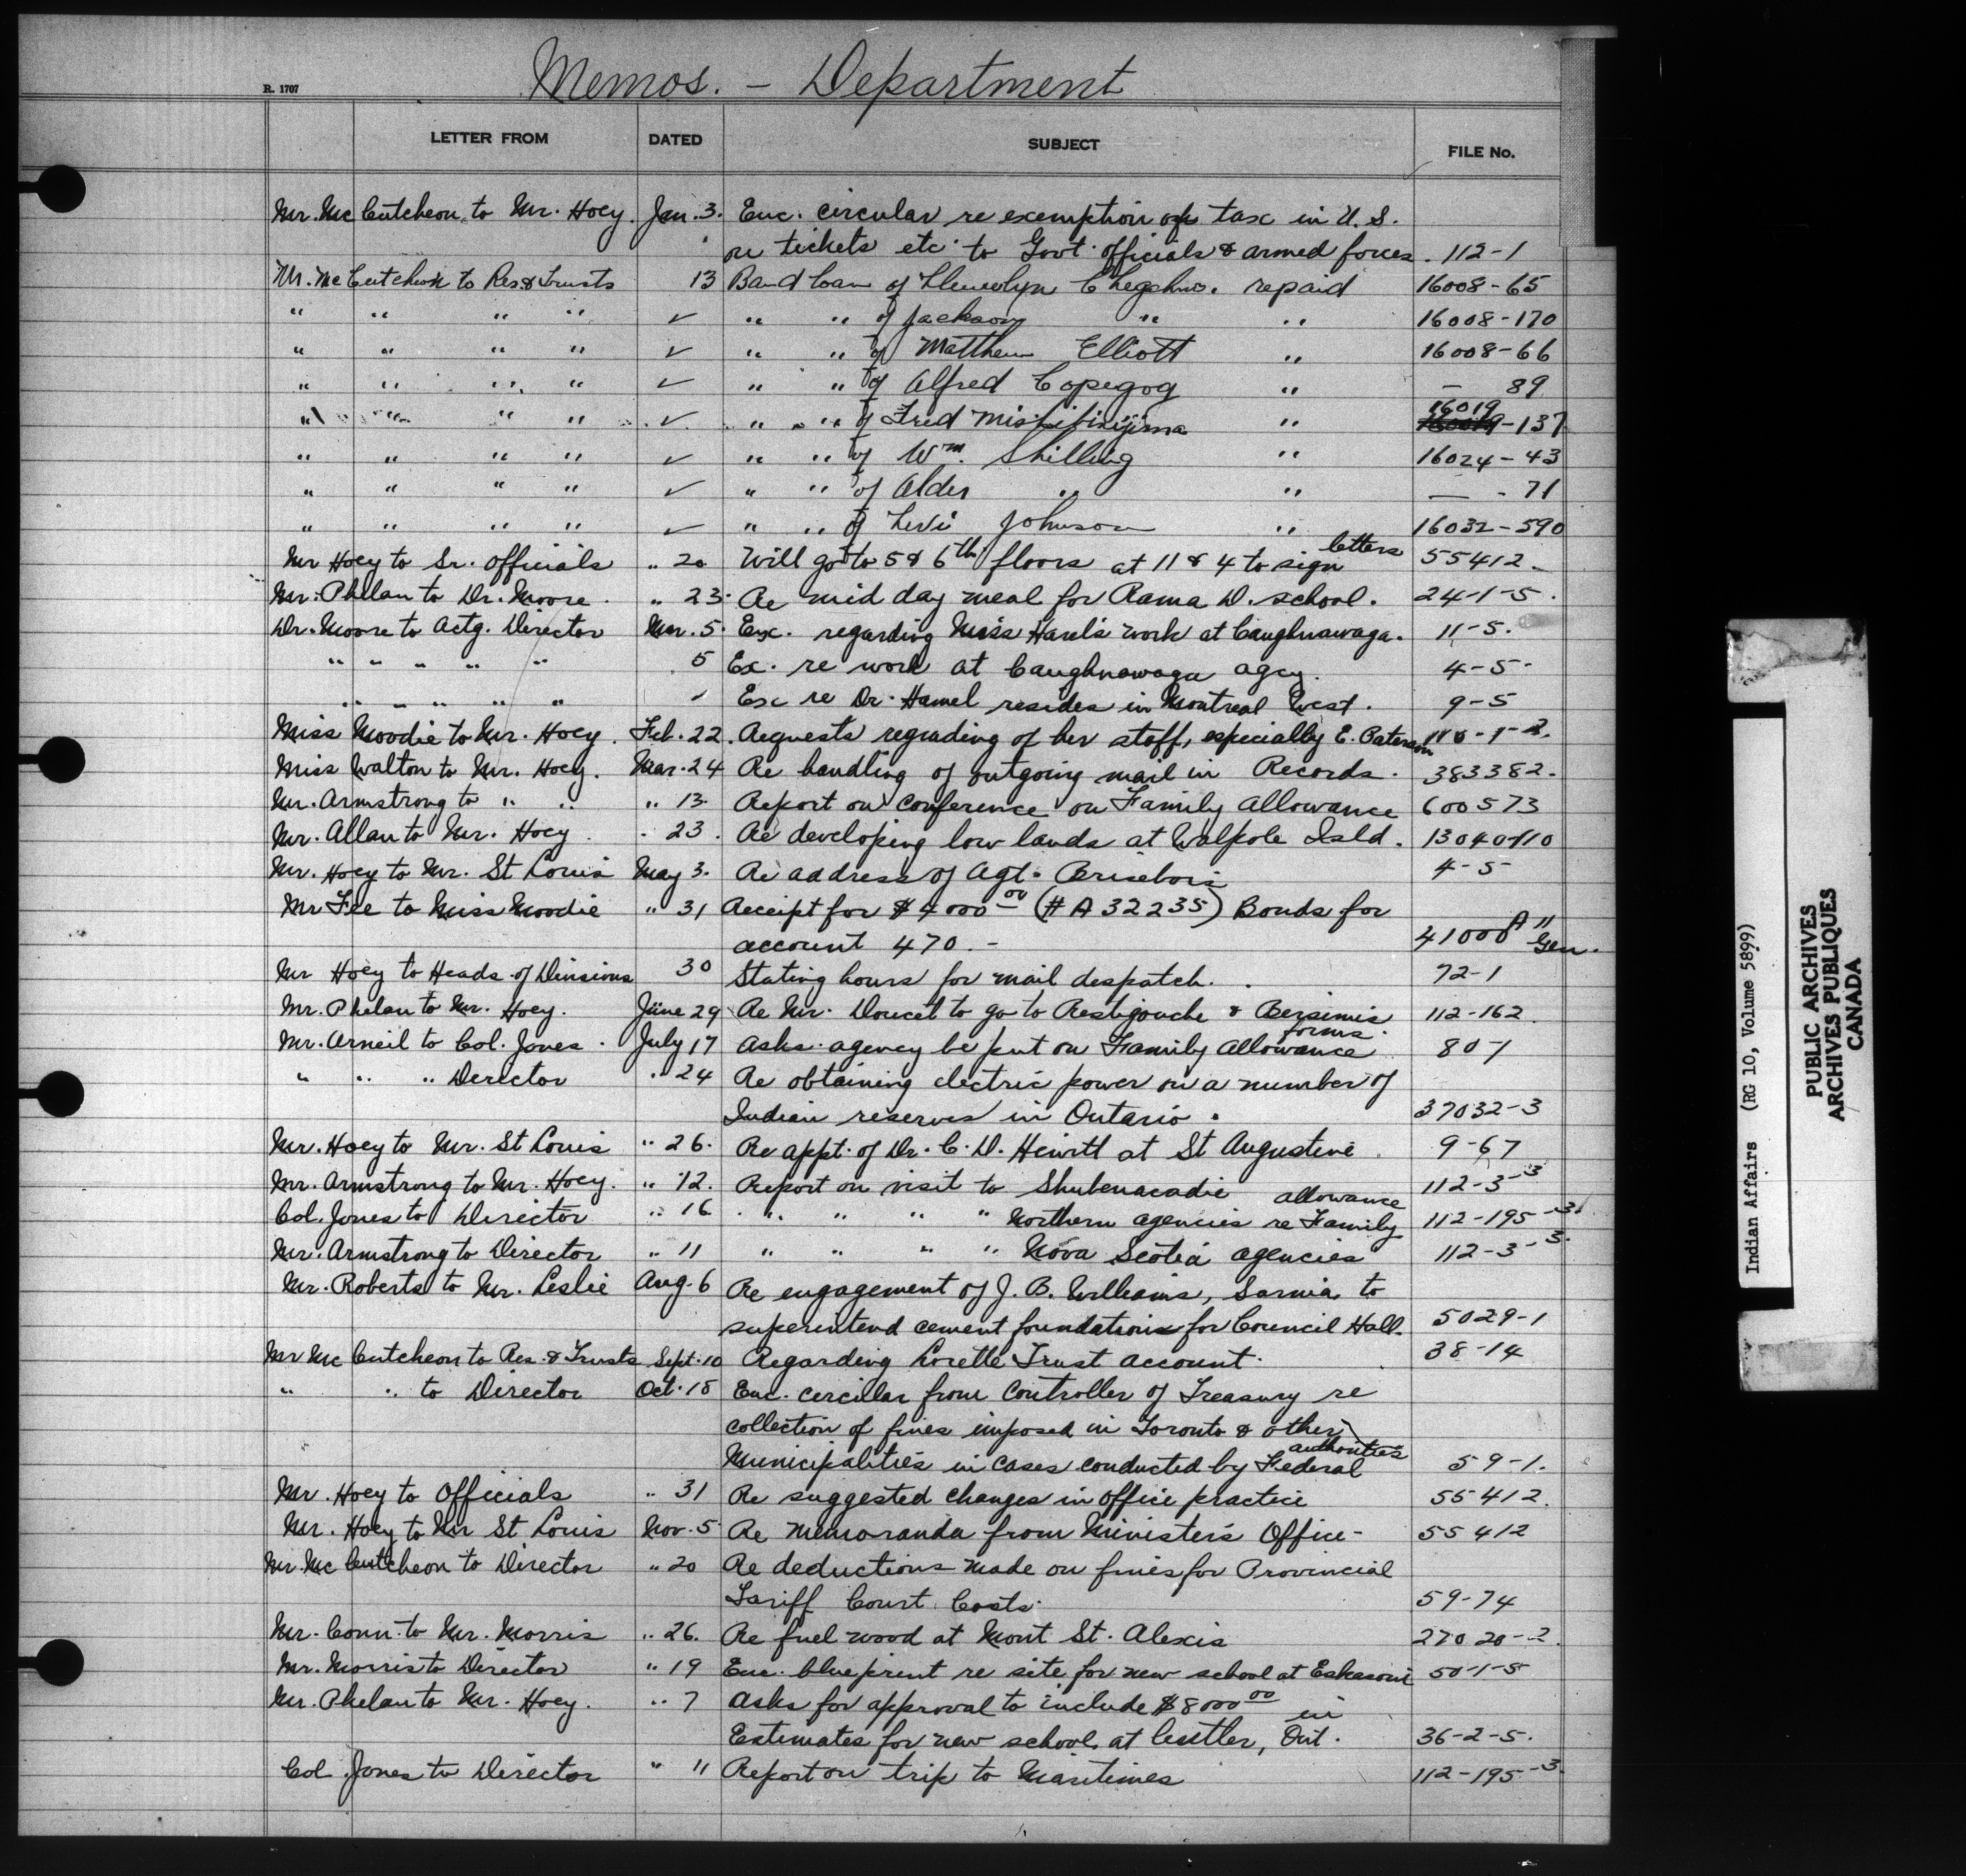 Memos. - Department
R. 1707
LETTER FROM DATED SUBJECT FILE No.
Mr. McCutcheon to Mr. Hoey. Jan. 3. Enc. circular re exemption of tax in U.S.
on tickets etc. to Govt. officials & armed forces. 112-1
Mr. McCutcheon to Res & Trusts 13 Band loan of Llewelyn repaid 16008-65
" " " " ✓ " " of Jackson " " 16008-170
" " " " ✓ " " of Matthew Elliott " 16008-66
" " " " ✓ " " of Alfred Copegog " — 89
" " " " ✓ " " of Fred " 16019-137
" " " " ✓ " " of Wm. Shilling " 16024-43
" " " " ✓ " " of Alder " " — - 71
" " " " ✓ " " of Levi Johnson " 16032-590
Mr Hoey to Sr. Officials " 20 Will go to 5 & 6th floors at 11 & 4 to sign letters 55412-
Mr. Phelan to Dr. Moore. " 23. Re mid day meal for Rama D. school. 24-1-5.
Dr. Moore to Actg. Director Mar. 5. Exc. regarding Miss work at Caughnawaga. 11-5.
" " " " " 5 Ex. re work at Caughnawaga agcy. 4-5-
" " " " " ✓ Exc re Dr. Hamel resides in Montreal West. 9-5
Miss Moodie to Mr. Hoey. Feb. 22. Requests regrading of her staff, especially E. Paterson
Miss Walton to Mr. Hoey. Mar. 24 Re handling of outgoing mail in Records. 383382.
Mr. Armstrong to " " " 13. Report on conference on Family Allowance 600573
Mr. Allan to Mr. Hoey. " 23. Re developing low lands at Walpole Isld.
Mr. Hoey to Mr. St Louis May 3. Re address of Agt. Brisebois 4-5
Mr Fee to Miss Moodie " 31 Receipt for $4000.00 (# A 32235) Bonds for
account 470. - 41000 A" Gen.
Mr Hoey to Heads of Divisions 30 Stating hours for mail despatch. 72-1
Mr. Phelan to Mr. Hoey. June 29 Re Mr. Doucet to go to Restigouche & Bersimis 112-162.
Mr. Arneil to Col. Jones. July 17 Asks agency be put on Family Allowance forms. 80-1
" " " Director " 24 Re obtaining electric power on a number of
Indian reserves in Ontario. 37032-3
Mr. Hoey to Mr. St Louis " 26. Re appt. of Dr. C. D. Hewitt at St Augustine 9-67
Mr. Armstrong to Mr. Hoey. " 12. Report on visit to Shubenacadie 112-3-3
Col. Jones to Director " 16 " " " " Northern agencies re Family allowance 112-195-3.
Mr. Armstrong to Director " 11 " " " " Nova Scotia agencies 112-3-3.
Mr. Roberts to Mr. Leslie Aug. 6 Re engagement of J. B. Williams, Sarnia to
superintend cement foundations for Council Hall. 5029-1
Mr McCutcheon to Res. & Trusts Sept. 10 Regarding Lorette Trust account. 38-14
" " to Director Oct. 18 Enc. circular from Controller of Treasury re
collection of fines imposed in Toronto & other
Municipalities in cases conducted by Federal authorities 59-1.
Mr. Hoey to Officials " 31 Re suggested changes in office practice 55412.
Mr. Hoey to Mr St Louis Nov. 5 Re Memoranda from Minister's Office- 55412
Mr. McCutcheon to Director " 20 Re deductions made on fines for Provincial
Tariff Court Costs. 59-74
Mr. Conn. to Mr. Morris " 26. Re fuel wood at Mont St. Alexis 27020-2.
Mr. Morris to Director " 19 Enc. blueprint re site for new school at Eskasoni 50-1-5
Mr. Phelan to Mr. Hoey. " 7 Asks for approval to include $8000.00 in
Estimates for new school at Cutler, Ont. 36-2-5.
Col. Jones to Director " 11 Report on trip to Maritimes 112-195-3.
Indian Affairs (RG 10, Volume 5899)
PUBLIC ARCHIVES
ARCHIVES PUBLIQUES
CANADA